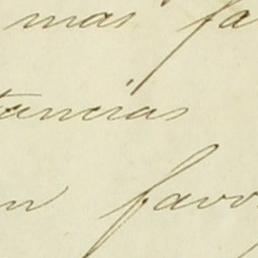 mas fa
tancias
n favo